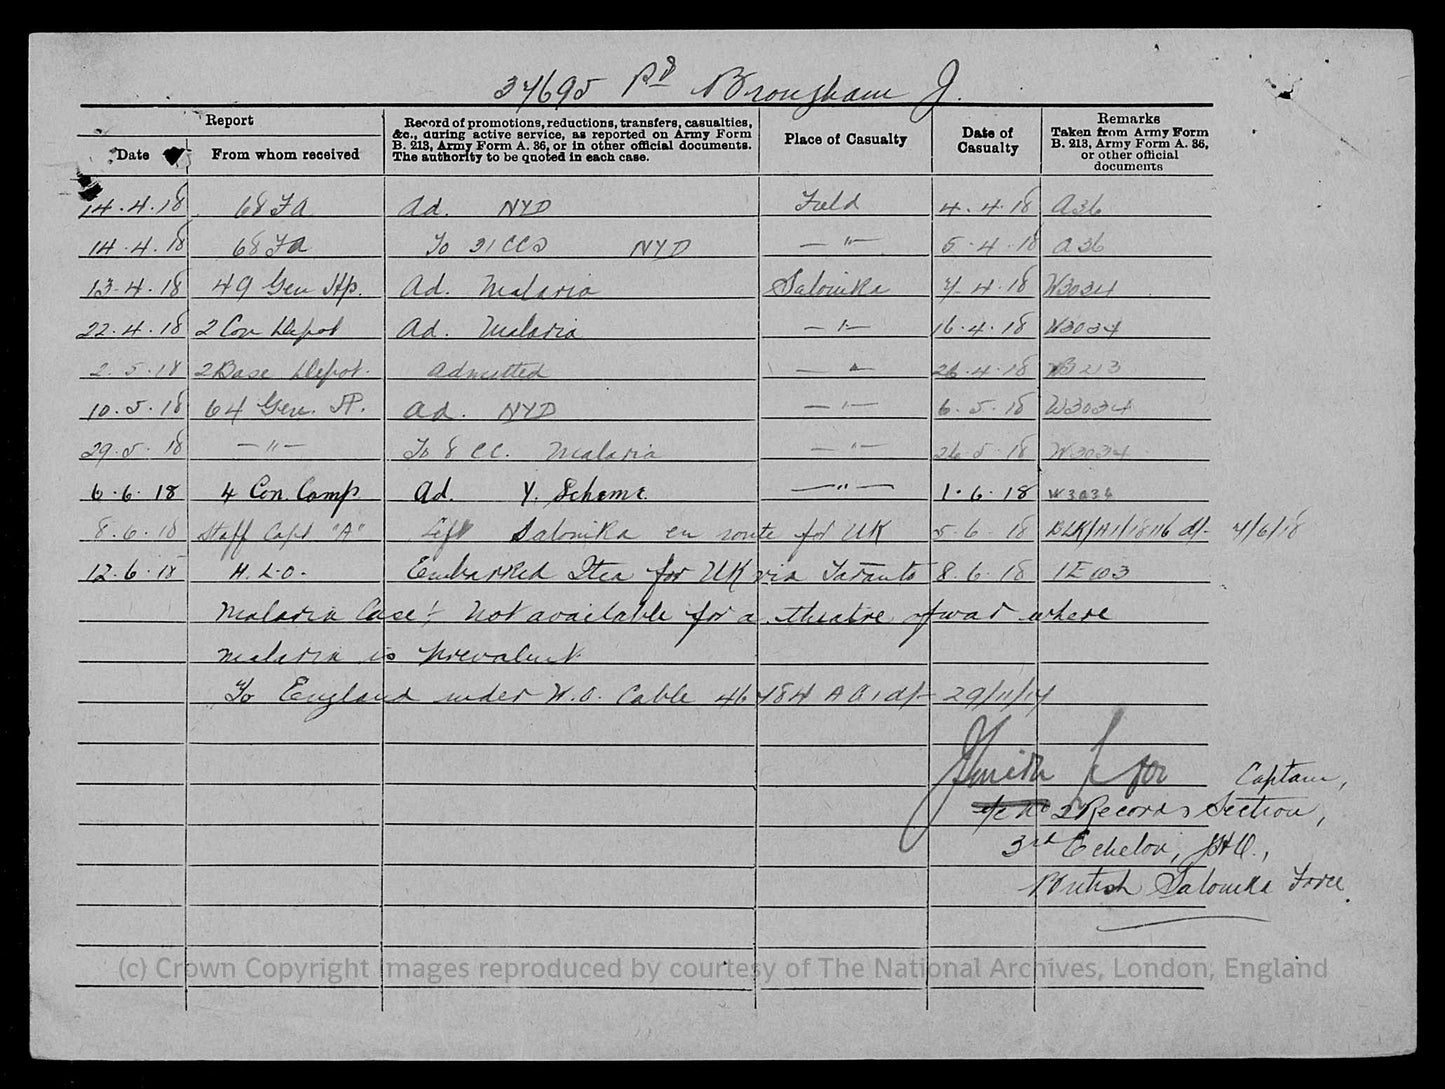 34695 Pte Brougham J.
Report
Record of promotions, reductions, transfers, casualties, &c., during active service, as reported on Army Form B. 213, Army Form A. 36, or in other official documents. The authority to be quoted in each case.
Place of Casualty
Date of Casualty
Remarks Taken from Army Form B. 213, Army Form A. 36, or other official documents
Date From whom received
14.4.18 68 FA Ad. NYD Field 4.4.18 A36
14.4.18 68 FA To 21 CCS NYD —"— 5.4.18 A36
13.4.18 49 Gen Hp. Ad. Malaria Salonika 7.4.18 W3034
22.4.18 2 Con Depot Ad. Malaria —"— 16.4.18 W3034
2.5.18 2 Base Depot. Admitted —"— 26.4.18 B213
10.5.18 64 Gen. H. Ad. NYD —"— 6.5.18 W3034
29.5.18 —"— To 8 CC. Malaria —"— 26.5.18 W3034
6.6.18 4 Con. Camp Ad. Y. Scheme —"— 1.6.18 W3034
8.6.18 Staff Capt "A" Left Salonika en route for UK 5.6.18 d/- 4/6/18
12.6.18 M.L.O. Embarked Itea for UK via Taranto 8.6.18
Malaria Case! Not available for a theatre of war where
malaria is prevalent
To England under W.O. Cable 46484 AG1 d/- 29/11/17
for Captain,
i/c No 2 Records Section,
3rd Echelon, GHQ.,
British Salonika Force.
(c) Crown Copyright Images reproduced by courtesy of The National Archives, London, England